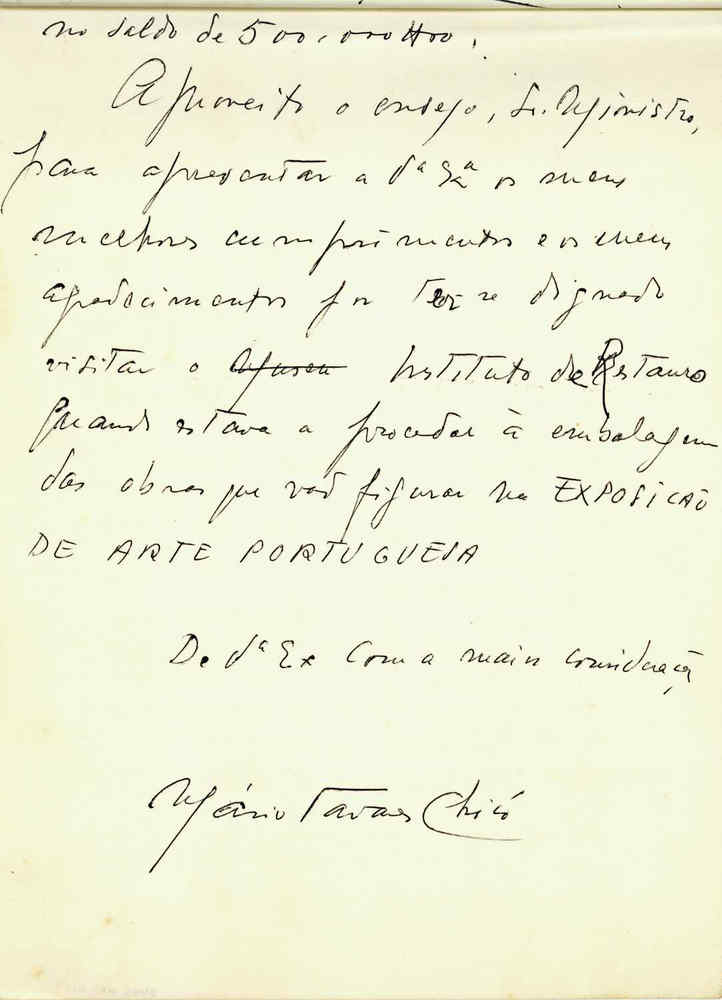 no saldo de 500.000$00.
Aproveito o ensejo, Sr. Ministro,
para apresentar a Vª Exª os meus
melhores cumprimentos e os meus
agradecimentos por ter se dignado
visitar o Museu Instituto de Restauro
quando estava a proceder à embalagem
das obras que vão figurar na EXPOSIÇÃO
DE ARTE PORTUGUESA
De Vª Ex com a maior consideração
Mário Tavares Chicó